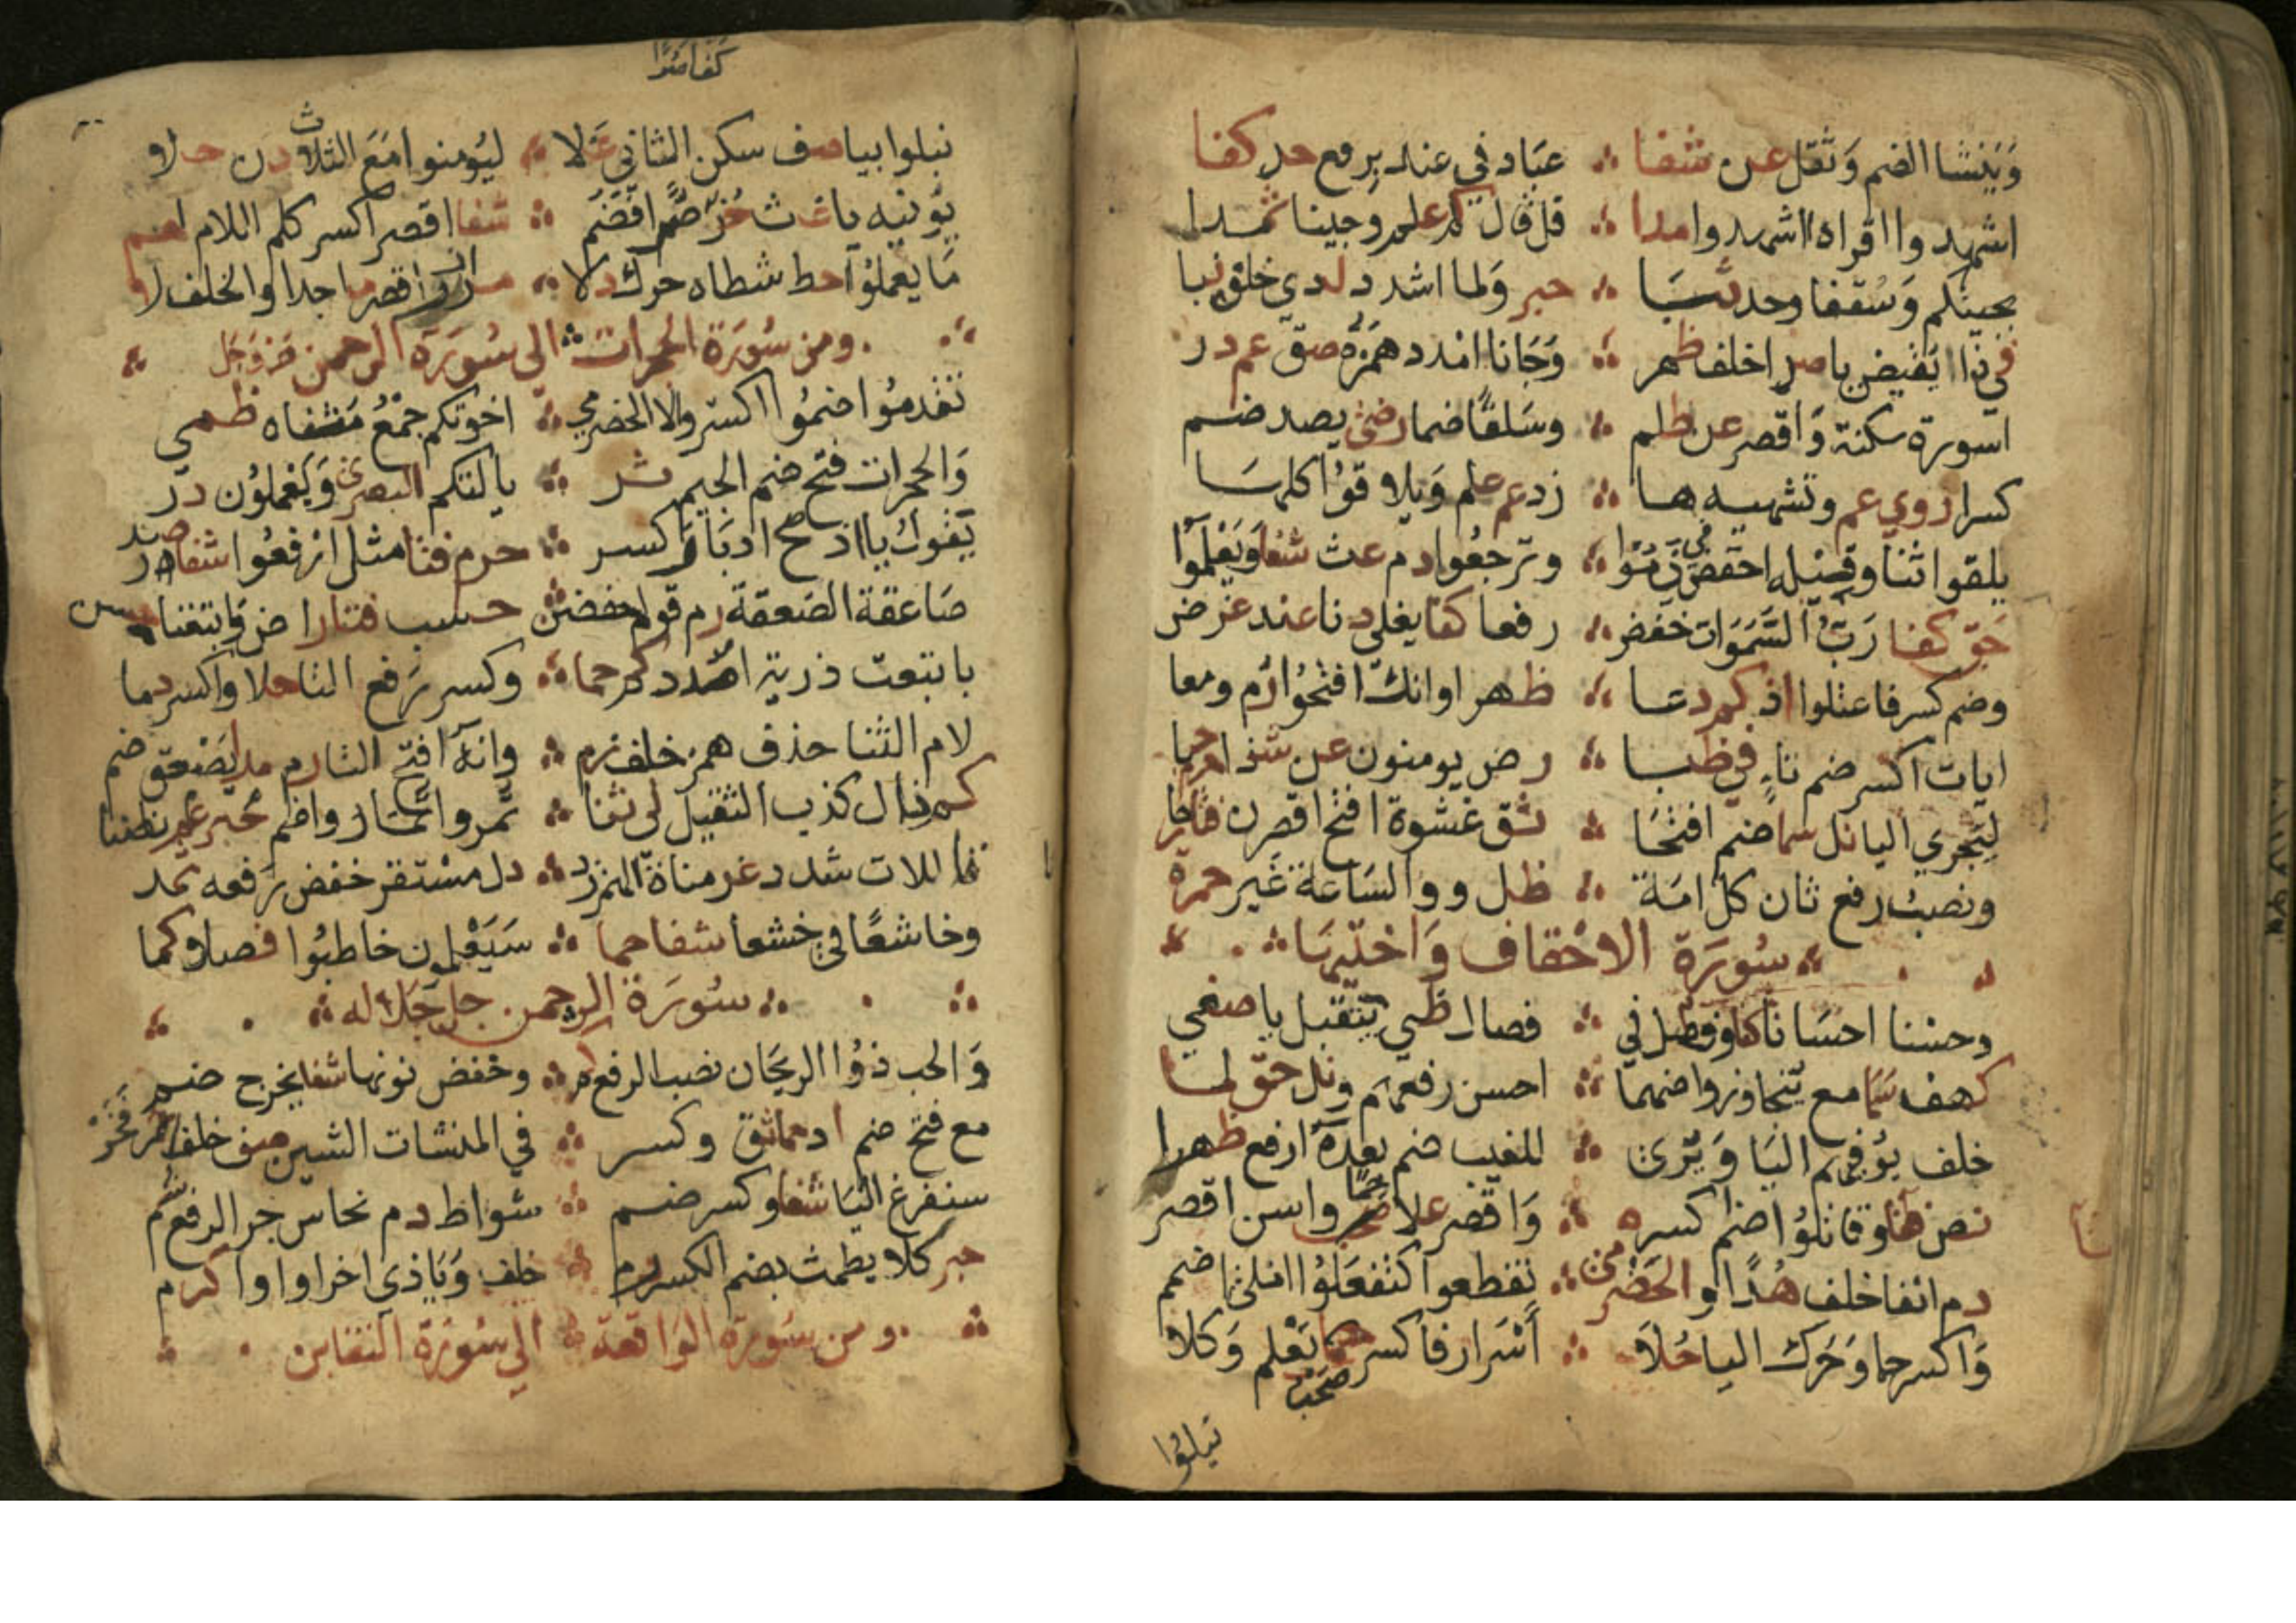 وَيَنشا الضم وَثقل عن شفا ∴ عبَاد في عند برفع حد كفا
اشهدوا اقراه ااشهدوا مدا ∴ قل قال كم علم وجينا ثمدا
بجيتكم وَسُقفا وحد ثبا ∴ حبر وَلما اشدد لدى خلف نبا
في ذا يقيض يا صدا خلف ظهر ∴ وَجَانا امدد همزه صف عم در
اسورة سكنه وَاقصر عن ظلم ∴ وسَلفًا ضما رضى يصد ضم
كسرا روى عم وتشتهيه ها ∴ زد عم علم وَيلاقوا كلها
يلقوا ثنا وقيله اخفض في نموا ∴ وترجعُوا دم غث شفا وَيَعْلموا
حَق كفا رَبّ السَّمَوَات خفض ∴ رفعا كفا يغلي دنا عند غرض
وضم كسر فاعتلوا اذ كم دعا ∴ ظهرا وانك افتحُوا رُم ومعا
ايات اكسر ضم تاء في ظبا ∴ رض يومنون عن شذا حرم حبا
لِيَجزي اليا نل سما ضم افتحَا ∴ ثق غشوة افتح اقصرن فتا رحا
ونصبُ رفع ثان كل امَة ∴ ظل ووالسَاعة غَير حمزة
∴ سُورَة الاحْقاف وَاختيهَا ∴
وحسنا احسَانا كفا وفصل في ∴ فصال ظبي يتقبل يا صفي
كهف سما مع يتجاوز واضمما ∴ احسن رفعهم ونل حق لما
خلف يوفيهم اليَا وَيرَى ∴ للغيب ضم بعدهُ ارفع ظهرا
نص فتا وقاتلوُا ضم اكسره ∴ وَاقصر علا حما واسن اقصر
دم انفا خلف هُدًا والحَضْرمى ∴ تقطعوا كتفعَلوُا املي اضمم
وَاكسر حما وَحَرك اليا حُلا ∴ أَسْرَار فاكسر صَحب يَعْلم وَكلا
نبلوُا
نبلوا بيا صف سكن الثاني غَلا ∴ ليُومنوا مَعَ الثلاث دن حلا
يوتيه يا غث حُز كفا ضُرًا فضُم ∴ شفا اقصر اكسر كلم اللام لهم
مَا يعملوُا حط شطاه حرك دلا ∴ مز ازر اقصر ماجدا والخلف لا
∴ ومن سُورَة الحجرات ∴ الى سُورَة الرحمن عز وَجَل ∴
تقدمُوا ضمُوا اكسروا لا الحضرمي ∴ اخوتكم جمْعُ مَثناه ظمي
وَالحجرات فتح ضم الجيم ثر ∴ يالتكم البصرى وَيَعْملوُن در
يَقوُل يا اذ صح ادبَار كسر ∴ حرم فتا مثل ارفعُوا شفا صدر
صَاعقة الصَعقة رم قوم اخفضن ∴ حسب فتا راض وَاتبعنا حسن
باتبعت ذرية امْدد كم حما ∴ وكسر رَفع التا حلا واكسر دما
لام التنا حذف همز خلف زم ∴ وانهُ افتح اتل رم يَصْعق ضم
كم نال كذب الثقيل لي ثنا ∴ تَمروا تُمَار واضم حبر عم نصنا
تا اللات شدد غر مناة الهمز زد ∴ دل مسْتقر خفض رَفعه ثمد
وخاشعًا في خشعا شفا حما ∴ سَيَعْلمون خاطبُوا فصلا كما
∴ سُورَة الرحمن جل جَلاله ∴
وَالحب ذوُا الريحَان نصب الرفع كم ∴ وخفض نونها شفا يخرج ضم
مع فتح ضم اد حما ثق وكسر ∴ في المنشات الشين صف خلفا فَخر
سنفرغ اليَا شفا وكسر ضم ∴ شواظ دم نحاس جر الرفع شم
حبر كلا يطمث بضم الكسر رم ∴ خلف وَيَا ذي اخرا واوا كرم
∴ ومن سُورَة الوَاقعة ∴ الى سُورَة التغابن ∴